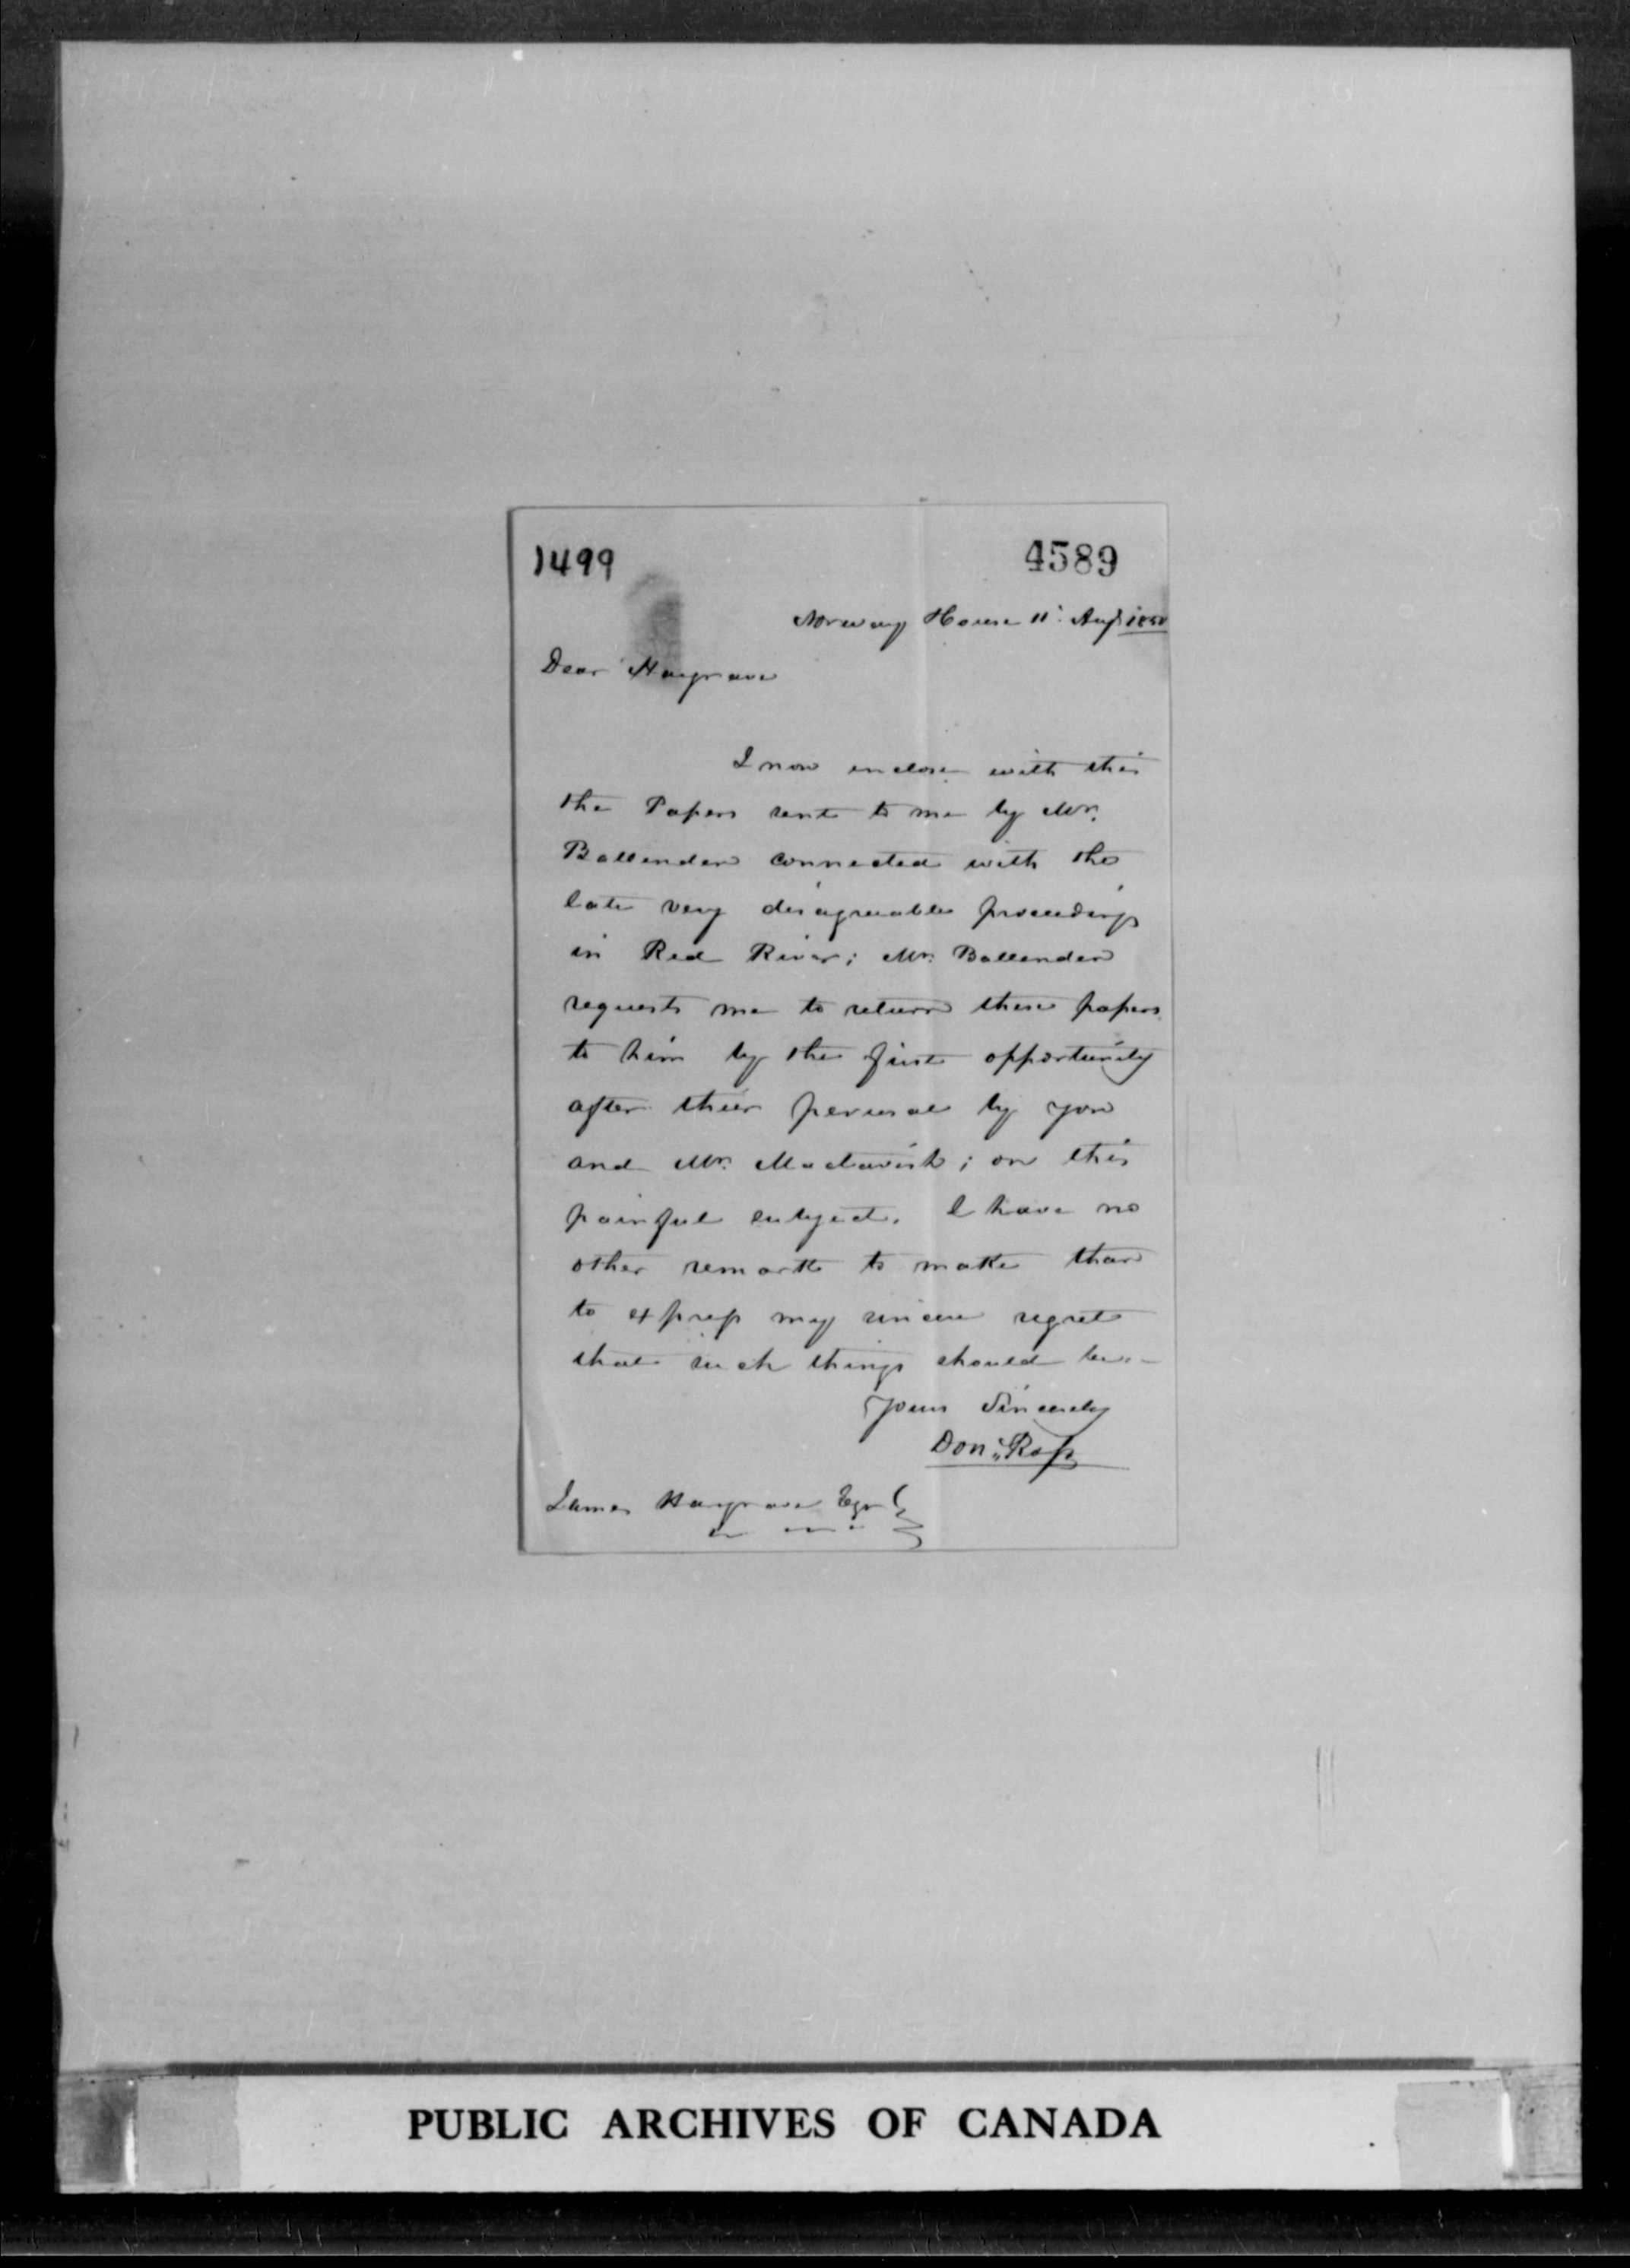 1499
4589
Norway House 11. Augt 1850
Dear Hargrave
I now enclose with this
the Papers sent to me by Mr.
Ballenden connected with the
late very disagreeable proceedings
in Red River; Mr. Ballenden
requests me to return these papers
to him by the first opportunity
after their perusal by you
and Mr. Mactavish; on this
painful subject. I have no
other remark to make than
to express my sincere regret
that such things should be.-
Yours Sincerely
Don: Ross
James Hargrave Esqr
PUBLIC ARCHIVES OF CANADA